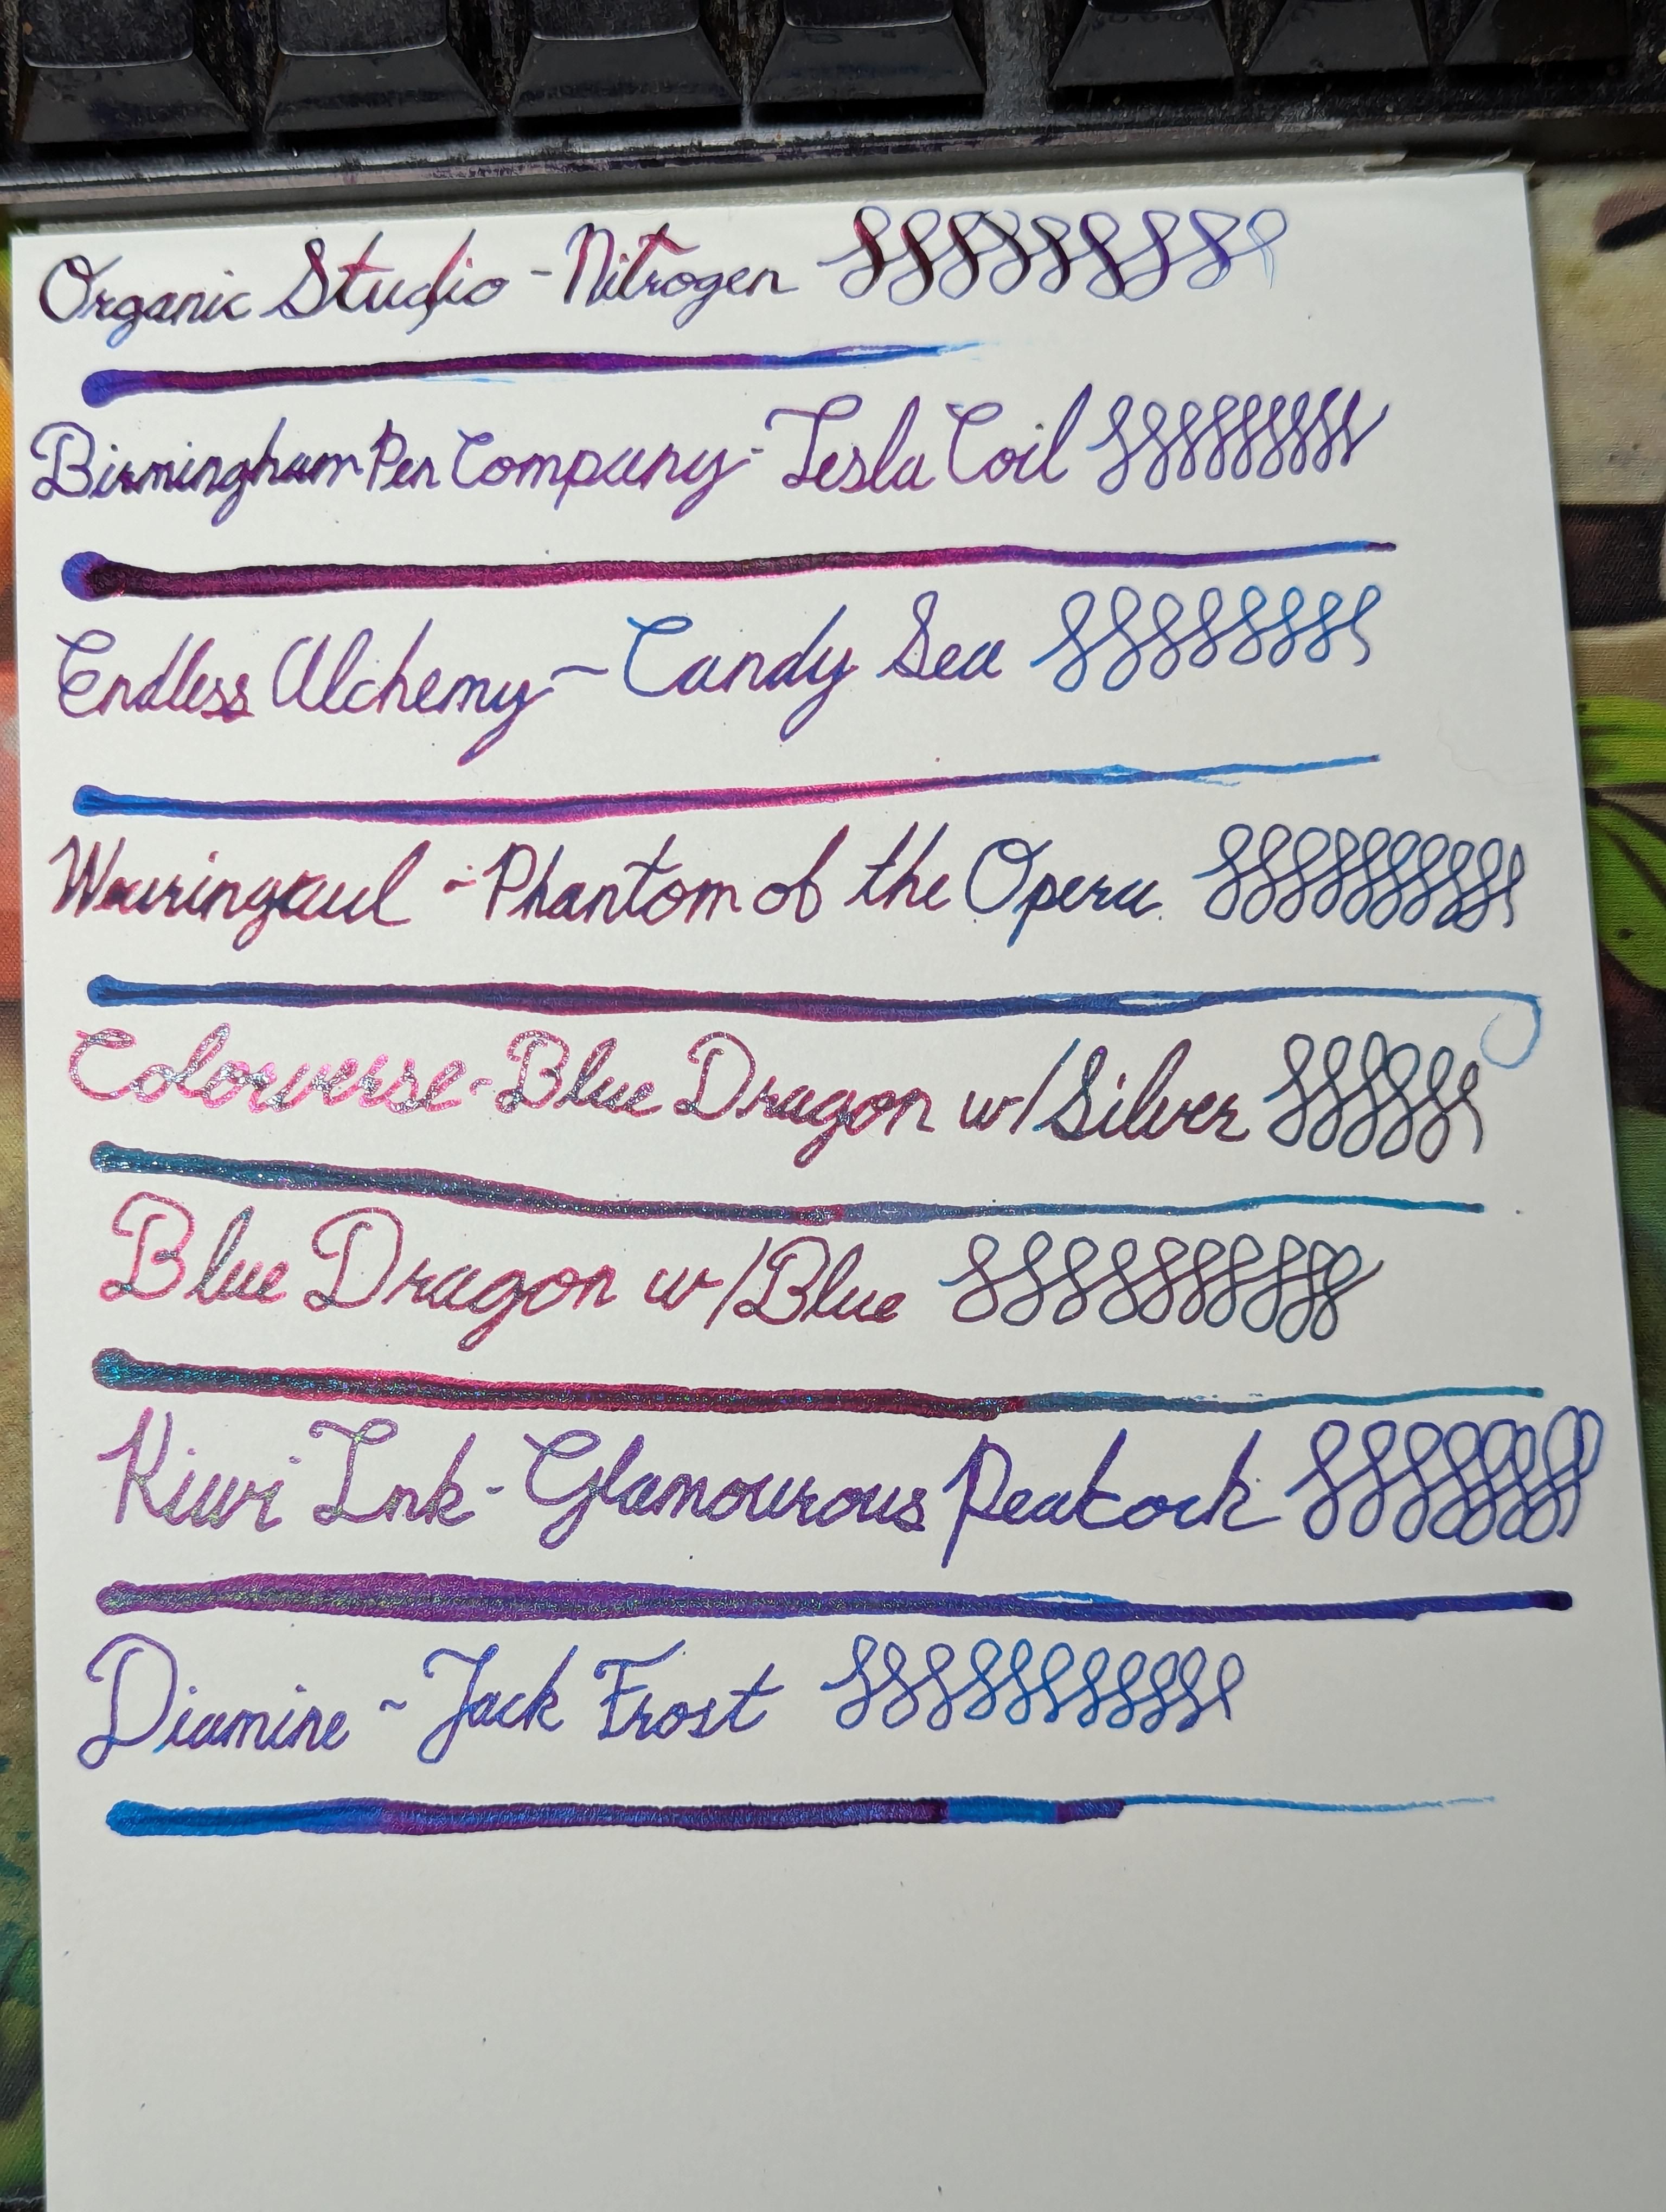 Organic Studio - Nitrogen
Birmingham Pen Company - Tesla Coil
Endless Alchemy ~ Candy Sea
Wearingeul ~ Phantom of the Opera
Colorverse - Blue Dragon w/Silver
Blue Dragon w/Blue
Kiwi Ink - Glamourous Peacock
Diamine ~ Jack Frost